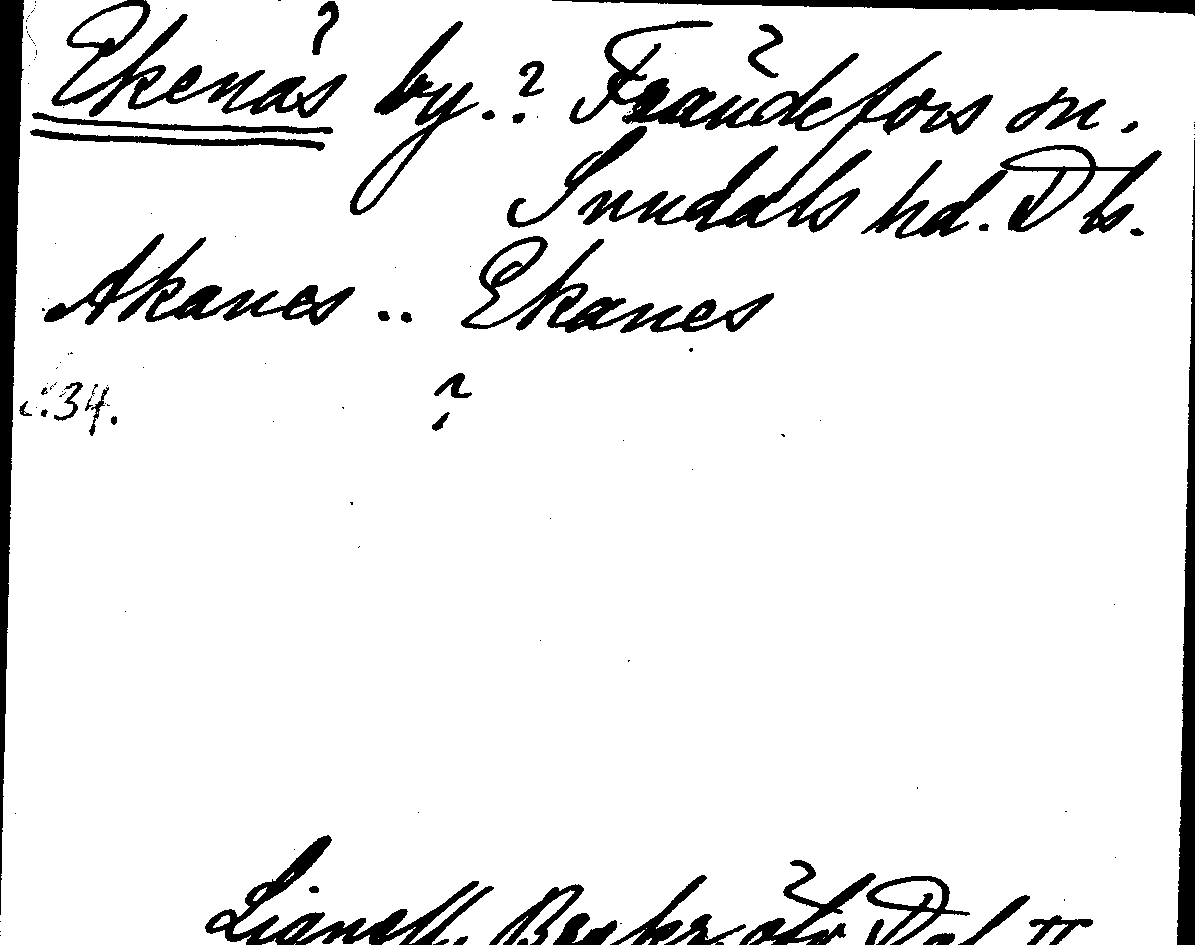 Ekenäs by.? Frändefors sn.
Sundals hd. Dls.
Akanes .. Ekanes
s.34. ?
Lignell, Beskr. öfv. Dal II